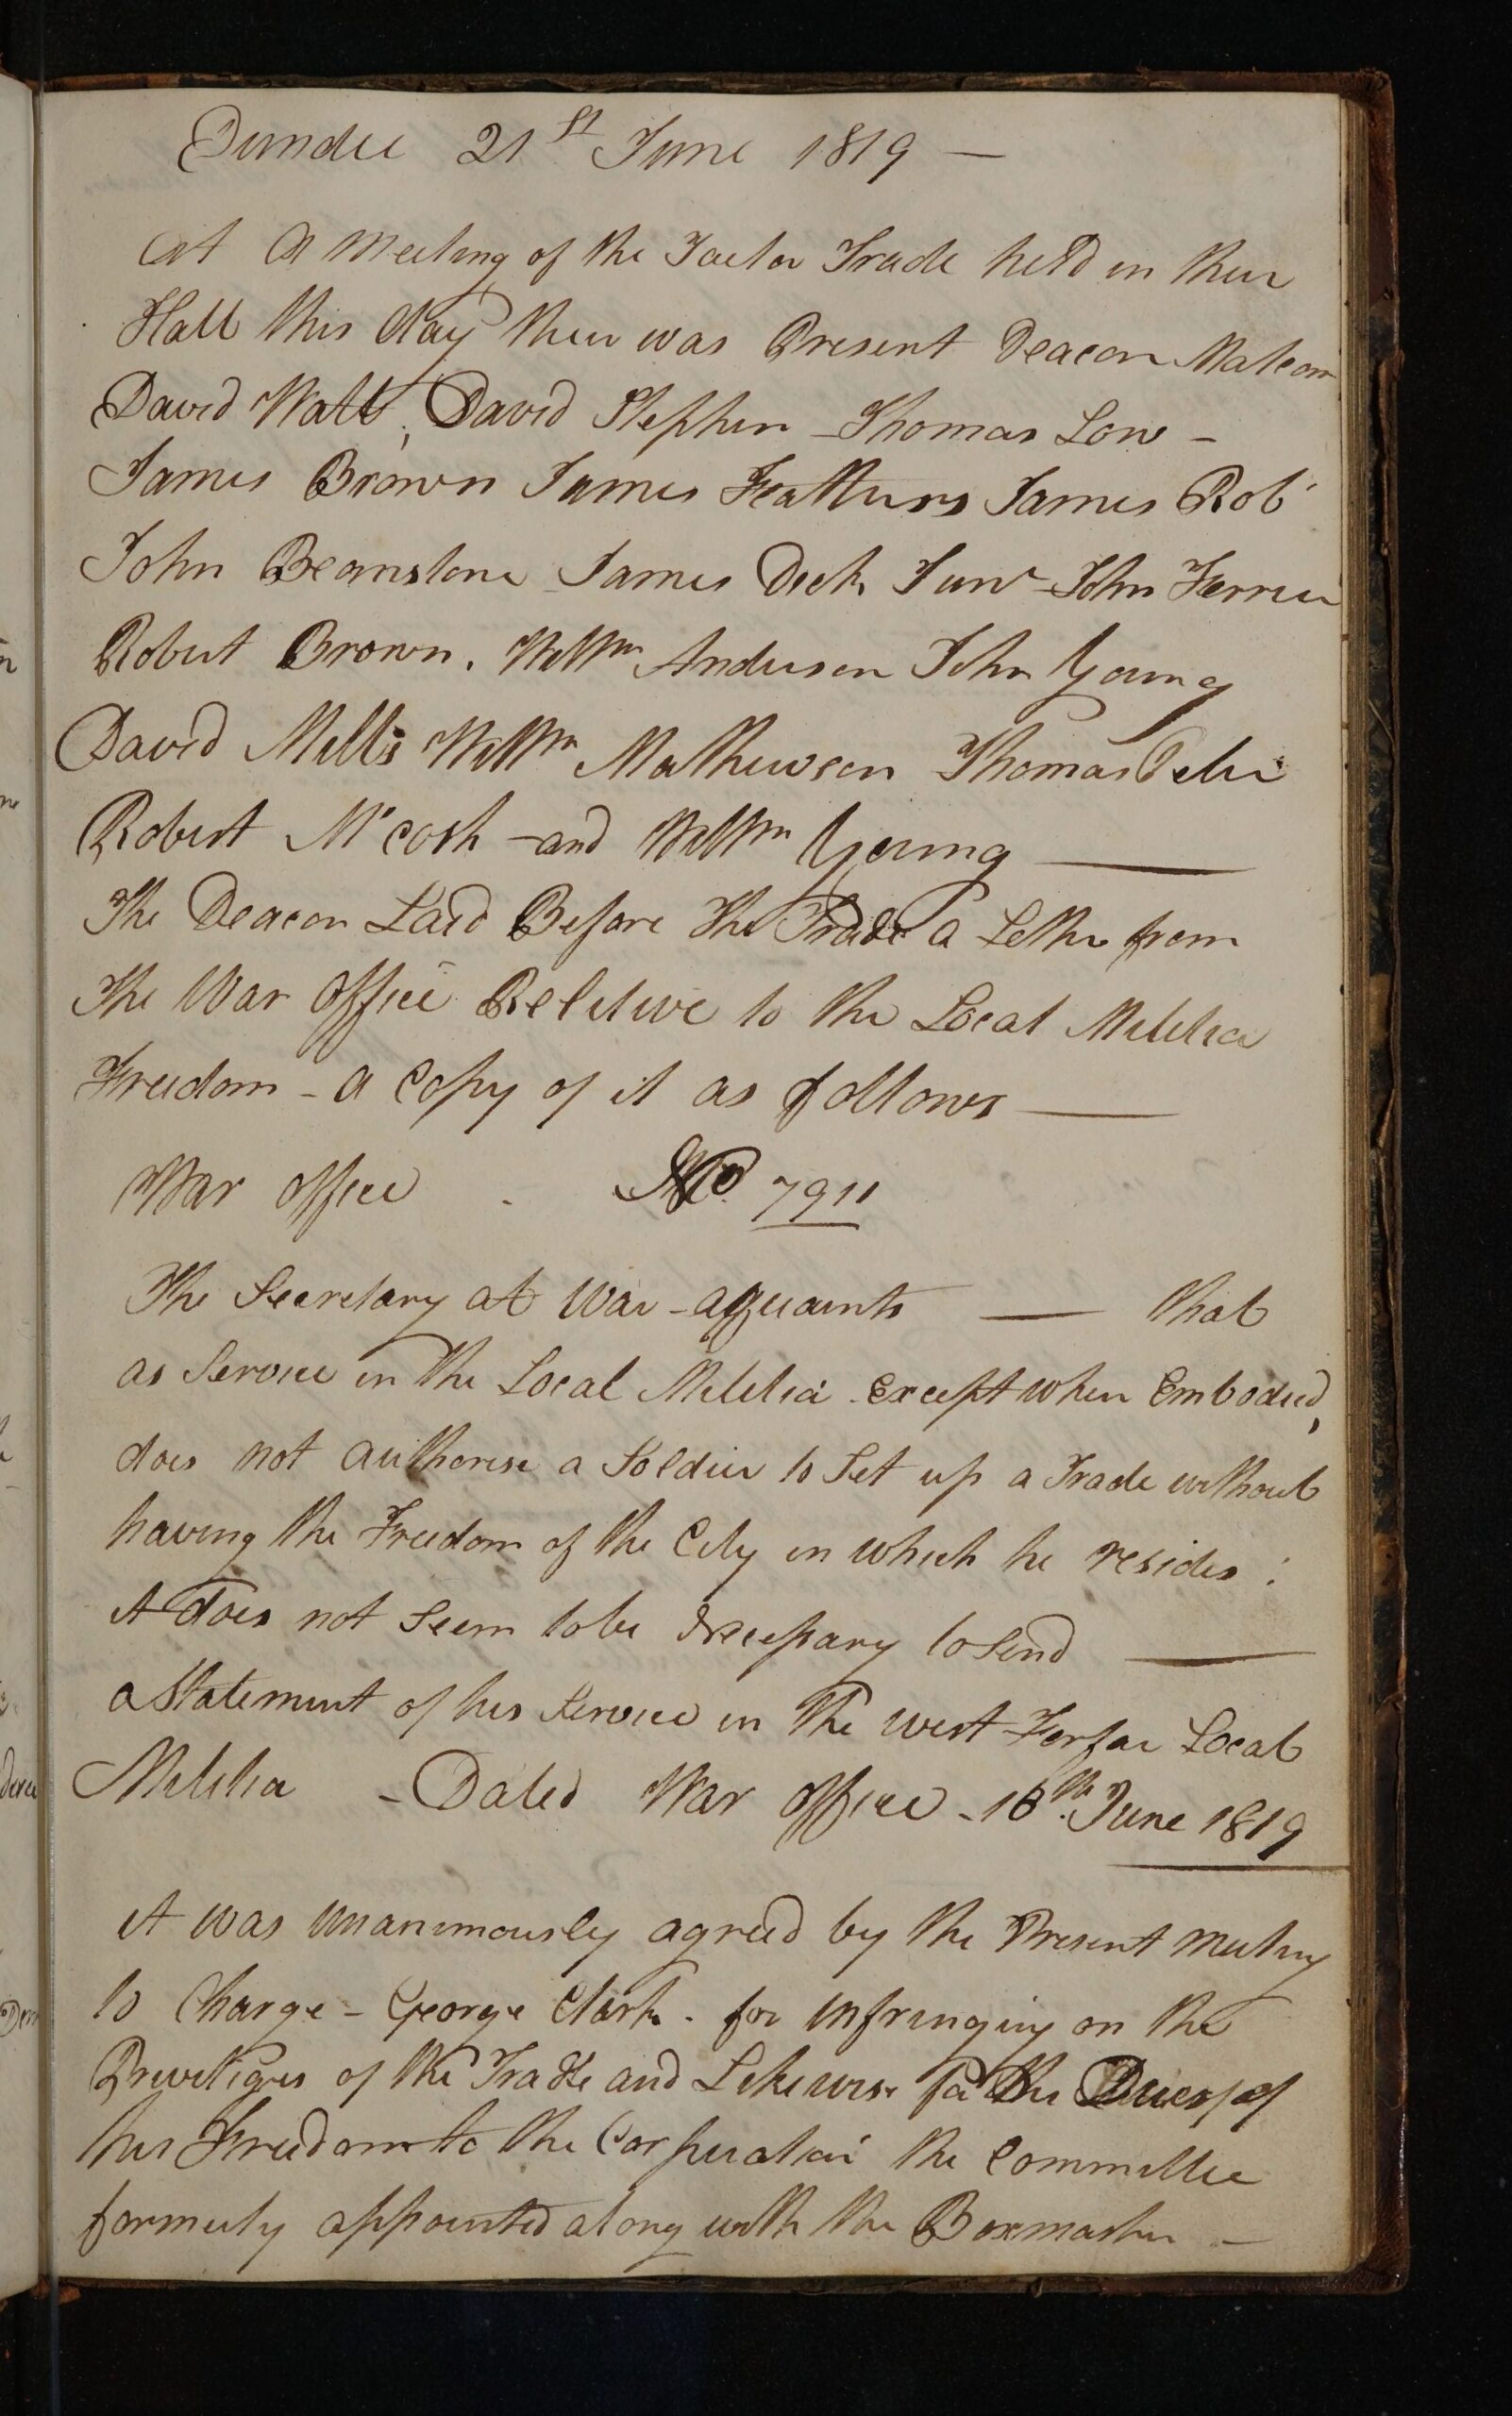 Dundee 21st June 1819 —
At A Meeting of the Taelor Trade held in their
Hall this day their was Present Deacon Malcom
David Watt, David Stephen – Thomas Low –
James Brown James Feathers James Rob
John Beamstone James Dick Junr John Ferrier
Robert Brown. Willm Anderson John Young
David Mills Willm Mathewson Thomas Peter
Robert McCosh – and Willm Young —
The Deacon Laid Before the Trade a Letter from
the War Office Relitive to the Local Militia
Freedom – a Copy of it as follows —
War office No 7911
The Secretary at War – aquaints — that
as Service in the Local Militia except when Embodied,
does not authorise a Soldier to Set up a Trade without
having the Freedom of the City in which he resides :
it does not Seem to be Necessary to Send —
a Statement of his Service in the west Forfar Local
Militia – Dated War office – 16th June 1819
it was unanimously agreed by the Present meeting
to Charge – George Clark. for infringing on the
Previliges of the Trade and Likewise for the Dues of
his Freedom to the Corperation the Committee
formerly appointed along with the Boxmaster –